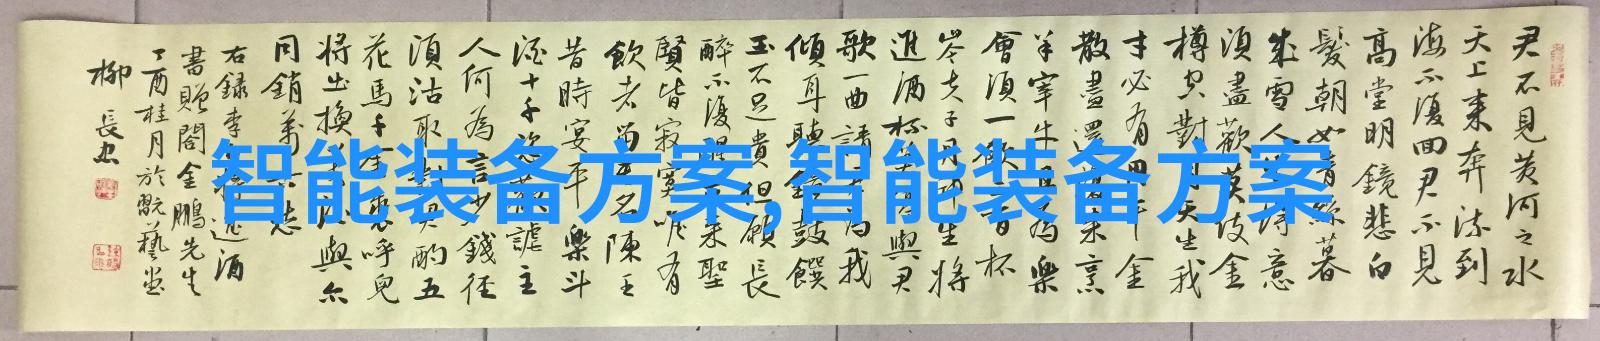 君不見黃河之水
天上來奔流到
海不復回君不見
高堂明鏡悲白
髮朝如青絲暮
成雪人得意
須盡歡莫使金
樽空對月天生我
才必有用千金
散盡還復來烹
羊宰牛且為樂
會須一飲百杯
岑夫子丹邱生將
進酒杯莫與君
歌一曲請君為我
傾耳聽鐘鼓饌
玉不足貴但願長
醉不復醒來聖
賢皆寂寞唯有
飲者留名陳王
昔時宴平樂斗
酒十千恣歡謔主
人何為言少錢徑
須沽取對君酌五
花馬千金裘呼兒
將出換酒與爾
同銷萬古愁
右錄李進酒
書贈閣金鵬先生
丁酉桂月於翫藝堂
柳長忠
智能装备方案,智能装备方案